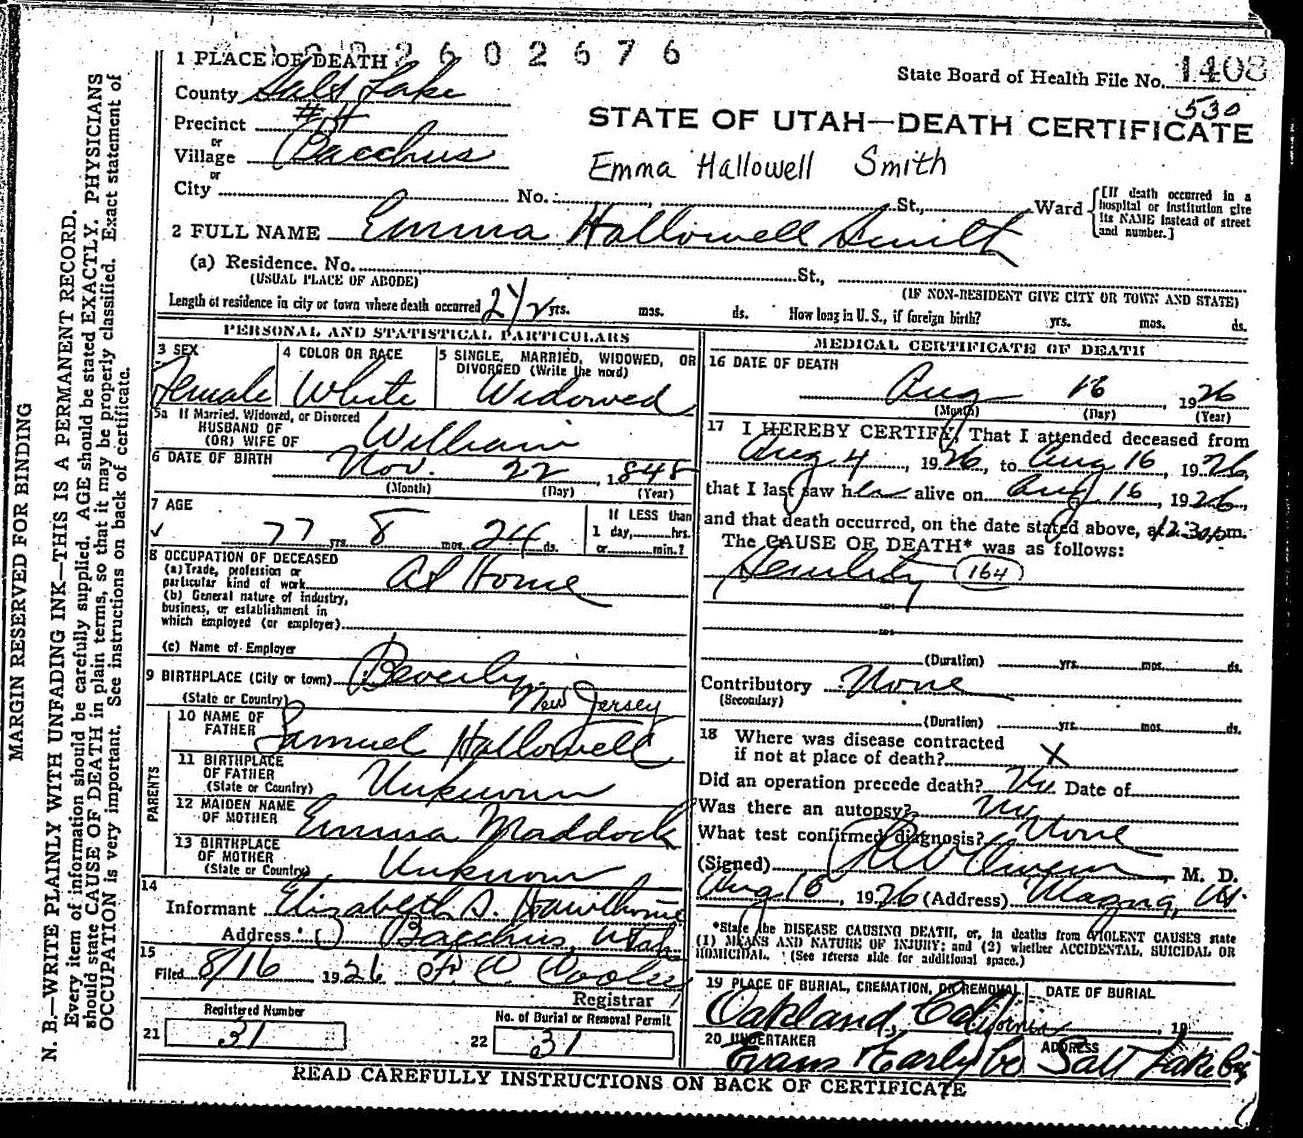 2602676
1 PLACE OF DEATH
State Board of Health File No. 1408
530
County Salt Lake
Precinct #14
or
Village Bacchus
or
City
STATE OF UTAH—DEATH CERTIFICATE
Emma Hallowell Smith
No. St., Ward
[If death occurred in a hospital or institution give its NAME instead of street and number.]
2 FULL NAME Emma Hallowell Smith
(a) Residence. No. St.,
(USUAL PLACE OF ABODE) (IF NON-RESIDENT GIVE CITY OR TOWN AND STATE)
Length of residence in city or town where death occurred 2 1/2 yrs. mos. ds. How long in U.S., if foreign birth? yrs. mos. ds.
PERSONAL AND STATISTICAL PARTICULARS
3 SEX
Female
4 COLOR OR RACE
White
5 SINGLE, MARRIED, WIDOWED, OR DIVORCED (Write the word)
Widowed
5a If Married, Widowed, or Divorced
HUSBAND OF
(OR) WIFE OF William
6 DATE OF BIRTH Nov. 22, 1848
(Month) (Day) (Year)
7 AGE
77 yrs. 8 mos. 24 ds.
If LESS than
1 day, hrs.
or min.?
8 OCCUPATION OF DECEASED
(a) Trade, profession or
particular kind of work At Home
(b) General nature of industry,
business, or establishment in
which employed (or employer)
(c) Name of Employer
9 BIRTHPLACE (City or town) Beverly
(State or Country) New Jersey
PARENTS
10 NAME OF
FATHER Samuel Hallowell
11 BIRTHPLACE
OF FATHER
(State or Country) Unknown
12 MAIDEN NAME
OF MOTHER Emma Maddock
13 BIRTHPLACE
OF MOTHER
(State or Country) Unknown
14
Informant Elizabeth S. Hawthorne
Address Bacchus, Utah
15
Filed 8/16 1926
Registrar
Registered Number
21 31
No. of Burial or Removal Permit
22 31
MEDICAL CERTIFICATE OF DEATH
16 DATE OF DEATH
Aug 16, 1926
(Month) (Day) (Year)
17 I HEREBY CERTIFY, That I attended deceased from
Aug 4, 1926, to Aug 16, 1926,
that I last saw her alive on Aug 16, 1926,
and that death occurred, on the date stated above, at 12:30 p m.
The CAUSE OF DEATH* was as follows:
Senility 164
(Duration) yrs. mos. ds.
Contributory None
(Secondary)
(Duration) yrs. mos. ds.
18 Where was disease contracted
if not at place of death? X
Did an operation precede death? No Date of
Was there an autopsy? No
What test confirmed diagnosis? None
(Signed) M. D.
Aug 16, 1926 (Address) Magna, Ut.
*State the DISEASE CAUSING DEATH, or, in deaths from VIOLENT CAUSES state
(1) MEANS AND NATURE OF INJURY; and (2) whether ACCIDENTAL, SUICIDAL OR
HOMICIDAL. (See reverse side for additional space.)
19 PLACE OF BURIAL, CREMATION, OR REMOVAL
Oakland, California
DATE OF BURIAL
, 19
20 UNDERTAKER
Evans & Early Co
ADDRESS
Salt Lake City
READ CAREFULLY INSTRUCTIONS ON BACK OF CERTIFICATE
MARGIN RESERVED FOR BINDING
N. B.—WRITE PLAINLY WITH UNFADING INK—THIS IS A PERMANENT RECORD.
Every item of information should be carefully supplied. AGE should be stated EXACTLY. PHYSICIANS
should state CAUSE OF DEATH in plain terms, so that it may be properly classified. Exact statement of
OCCUPATION is very important. See instructions on back of certificate.